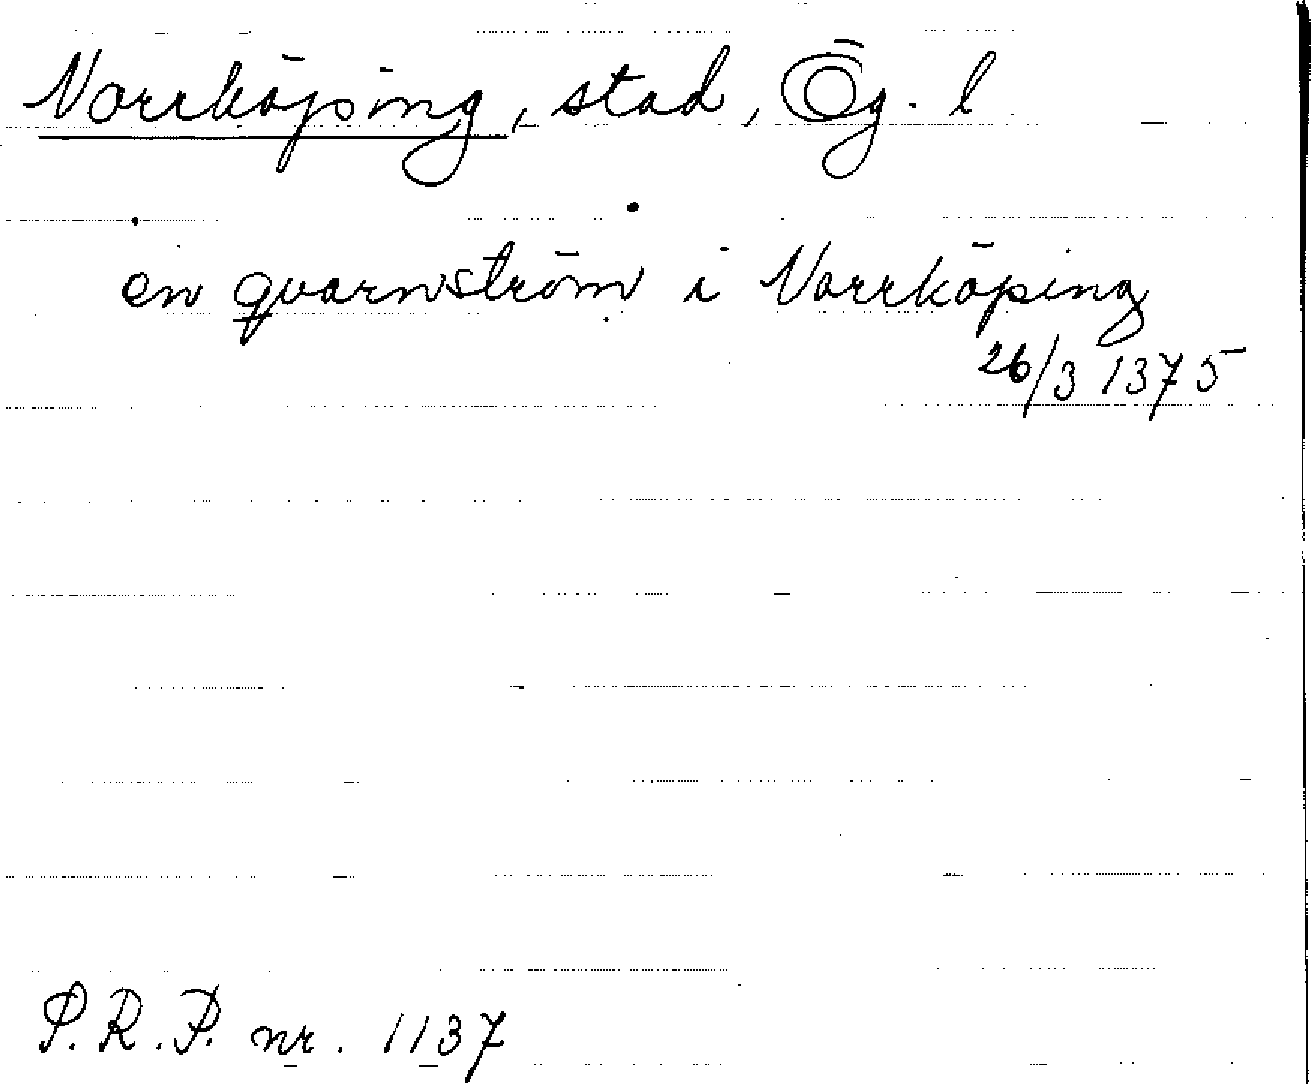 Norrköping, stad, Ög. l
en qvarnström i Norrköping
26/3 1375
P.R.P. nr. 1137